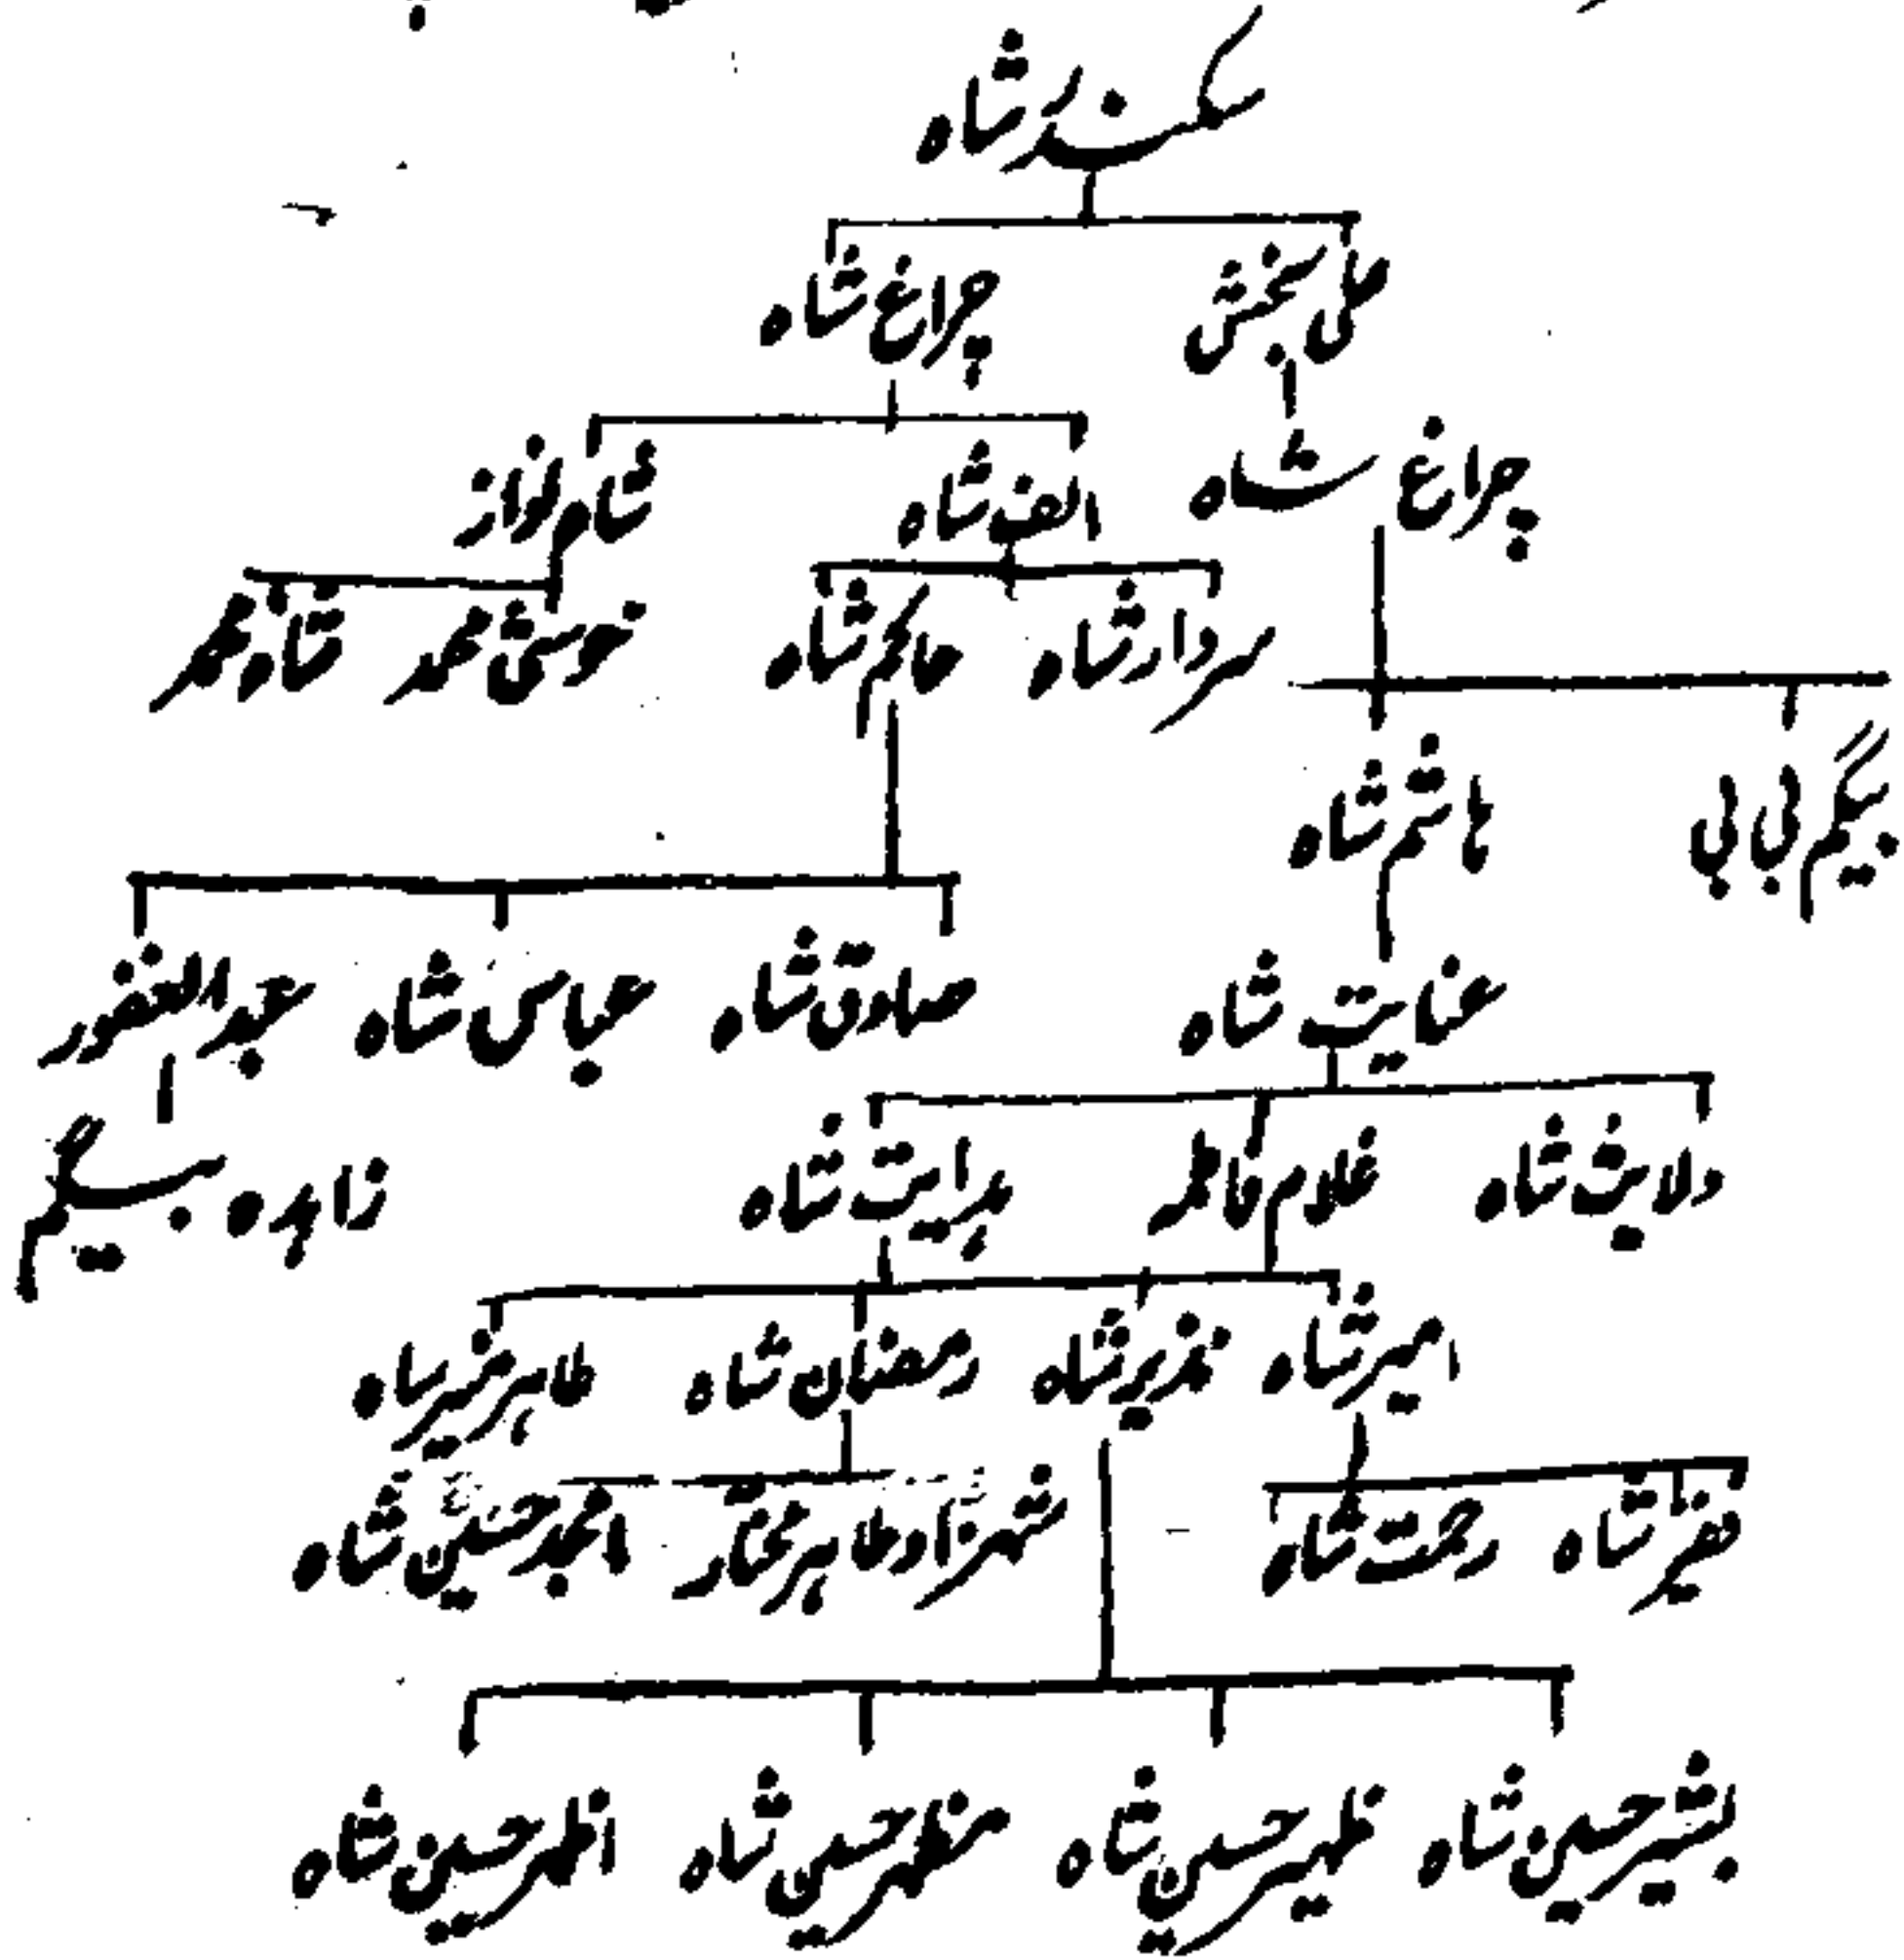 سکندر شاہ
علی بخش چراغ شاہ
چراغ شاہ الف شاہ شاہنواز
سردار شاہ حاکم شاہ خوشی محمد شاہ محمد
بیگم بی بی ہاشم شاہ
عنایت شاہ صادق شاہ عباس شاہ عبدالغفور
ولایت شاہ غلام فاطمہ ہدایت شاہ زاہدہ بیگم
امیر شاہ نذیر شاہ رمضان شاہ طاہر نذیر شاہ
شاہ رحمت شاہ شہزاد طاہر مختار امجد حسین شاہ
بشیر حسین شاہ ظہیر حسین شاہ مظہر حسین شاہ اظہر حسین شاہ